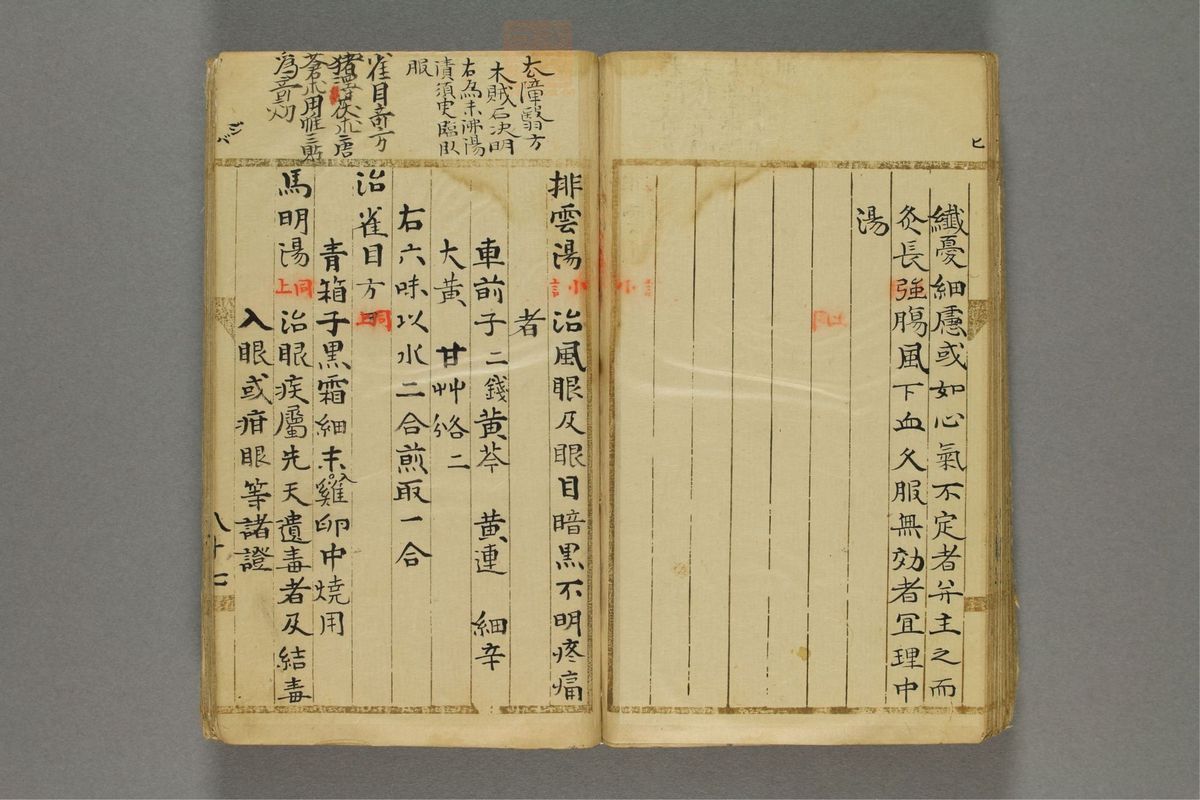 纖憂細慮或如心氣不定者并主之而
灸長強腸風下血久服無効者宜理中
湯
去障翳方
木賊石決明
右為末沸湯
漬須臾臨臥
服
雀目奇方
排雲湯 治風眼及眼目暗黒不明疼痛
者
車前子二錢黄芩 黄連 細辛
大黄 甘艸各二
右六味以水二合煎取一合
治雀目方 同上
青箱子黒霜細末入雞卵中焼用
馬明湯 同上 治眼疾屬先天遺毒者及結毒
入眼或疳眼等諸證
八十七